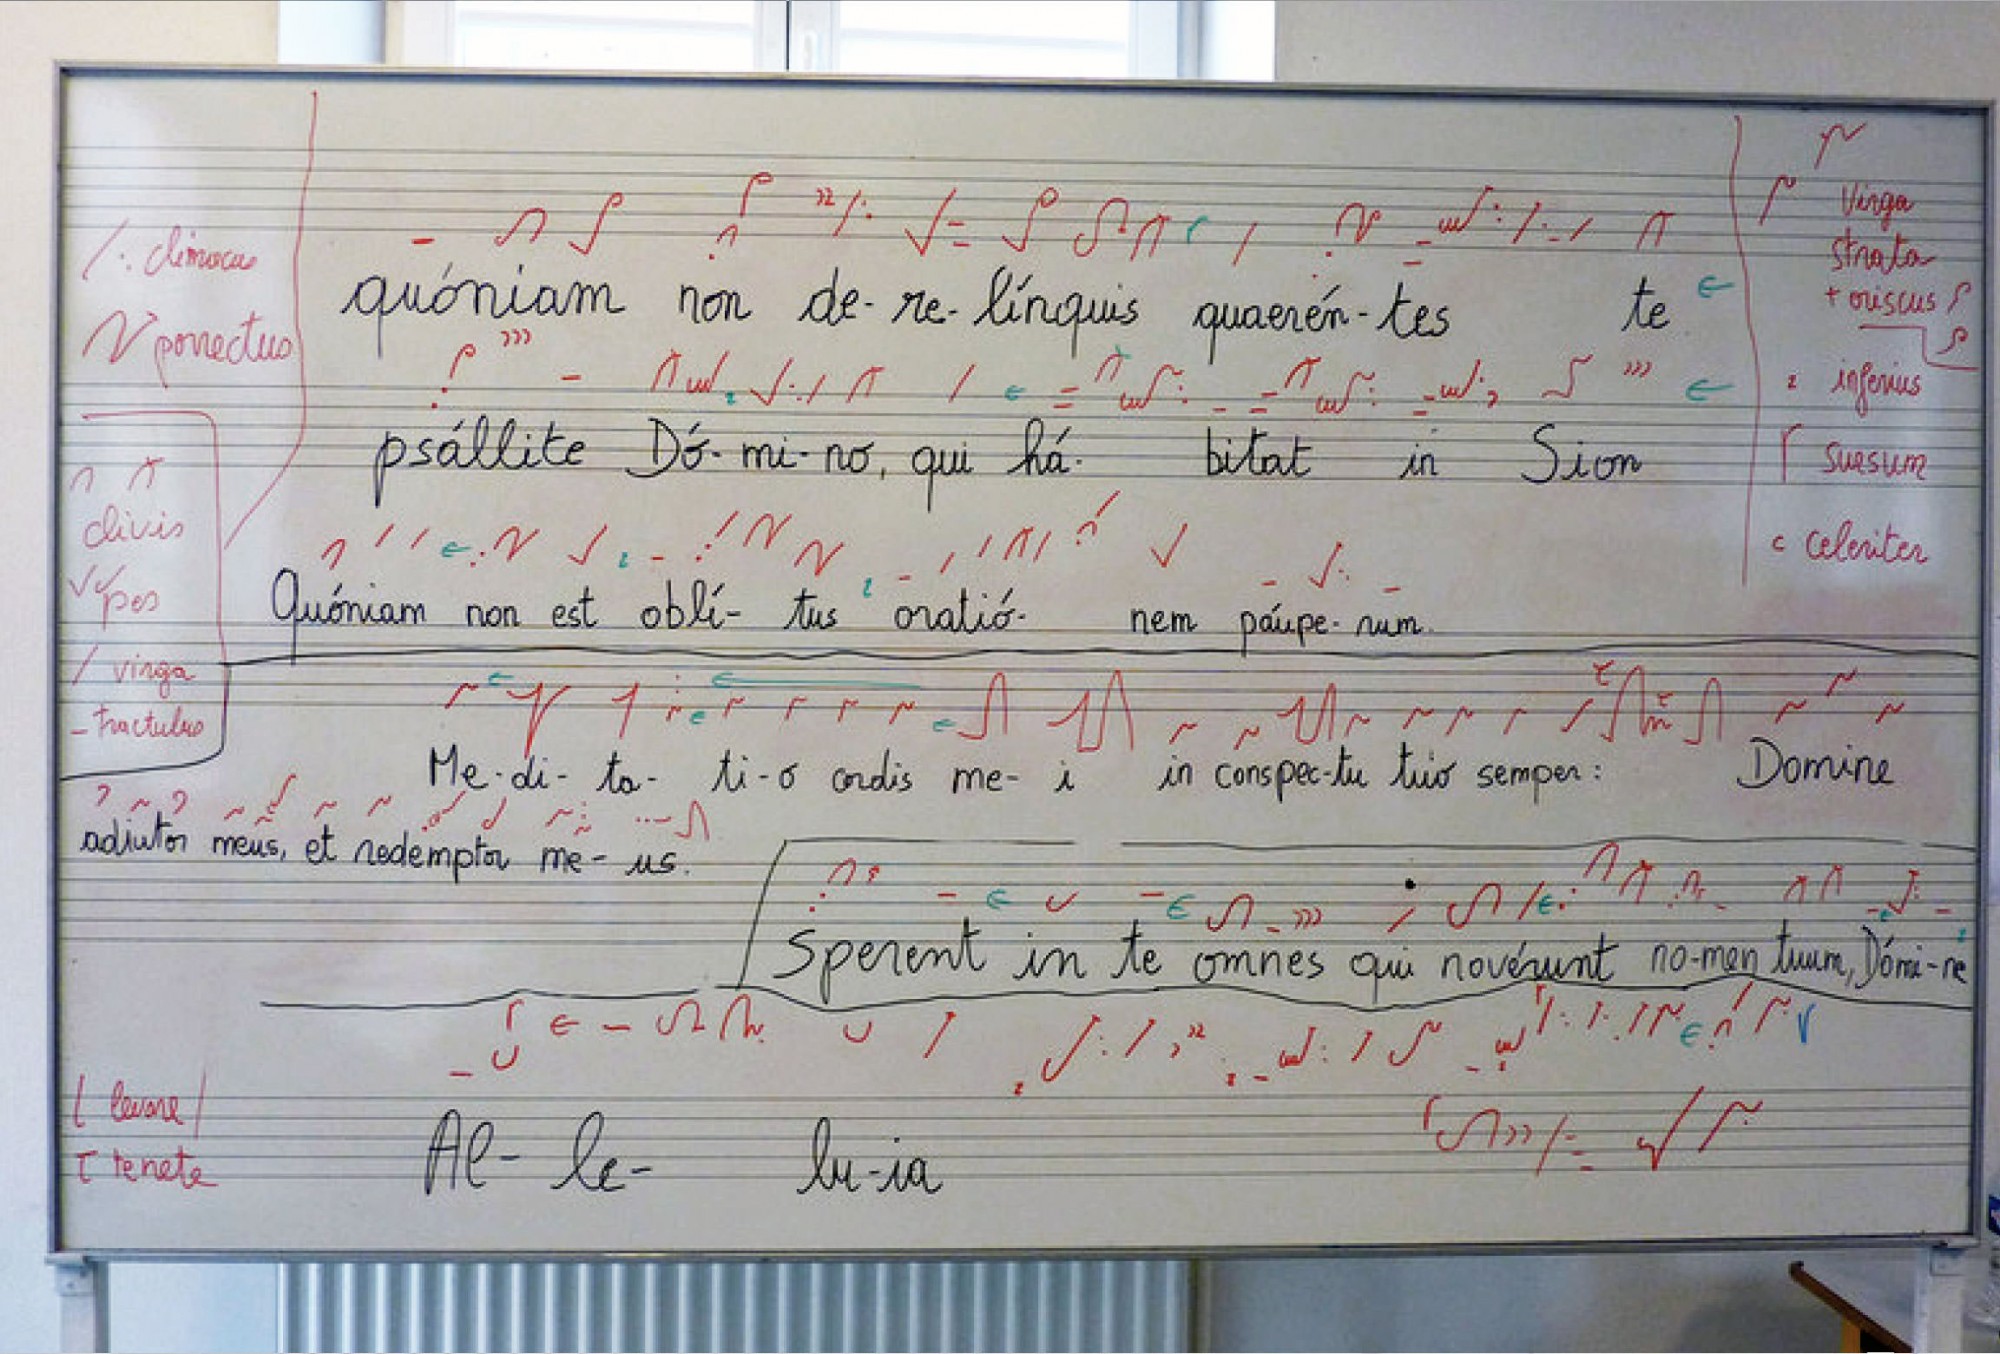 quóniam non de-re-línquis quaerén-tes te
psállite Dó-mi-no, qui há- bitat in Sion
Quóniam non est oblí-tus oratió- nem páupe-rum.
Me-di-ta-ti-o cordis me-i in conspec-tu tuo semper: Domine
adiutor meus, et redemptor me-us.
Sperent in te omnes qui novérunt no-men tuum, Dómi-ne
Al-le-lu-ia
climacus
porrectus
clivis
pes
virga
tractulus
levare
tenete
Virga
strata
+ oriscus
inferius
sursum
c celeriter